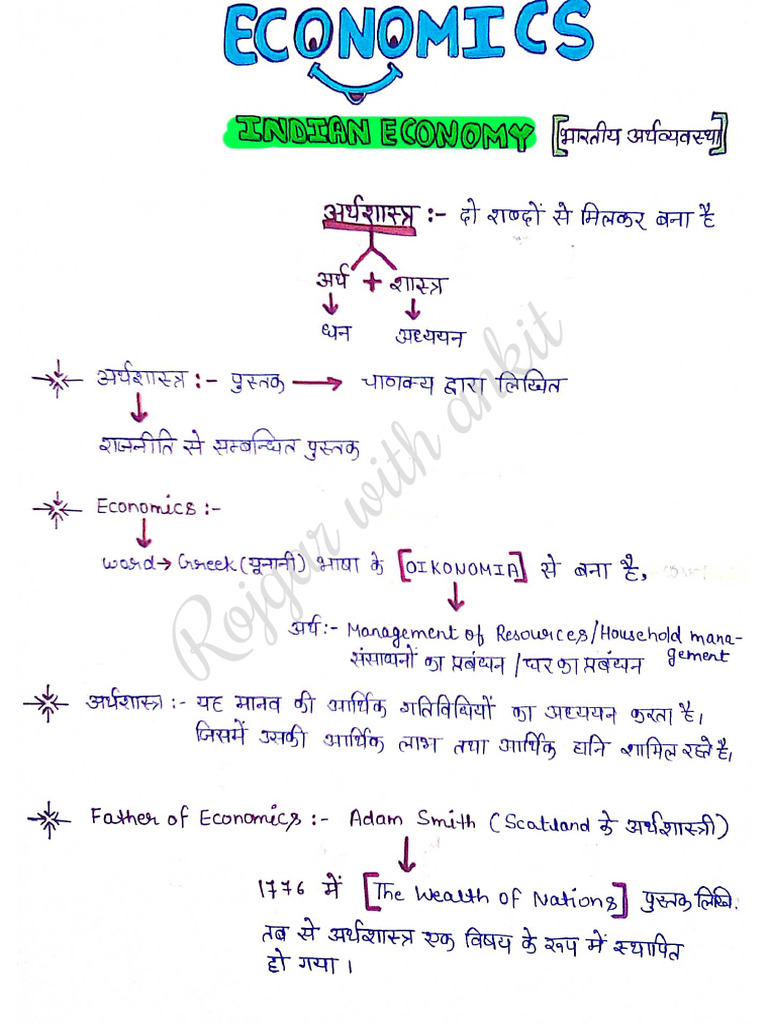 ECONOMICS
INDIAN ECONOMY [भारतीय अर्थव्यवस्था]
अर्थशास्त्र :- दो शब्दों से मिलकर बना है
अर्थ + शास्त्र
धन अध्ययन
अर्थशास्त्र :- पुस्तक → चाणक्य द्वारा लिखित
राजनीति से सम्बन्धित पुस्तक
Economics :-
word → Greek (यूनानी) भाषा के [OIKONOMIA] से बना है,
अर्थ :- Management of Resources/Household mana-
gement
संसाधनों का प्रबंधन / घर का प्रबंधन
अर्थशास्त्र :- यह मानव की आर्थिक गतिविधियों का अध्ययन करता है।
जिसमें उसकी आर्थिक लाभ तथा आर्थिक हानि शामिल रहते है,
Father of Economics :- Adam Smith (Scotland के अर्थशास्त्री)
1776 में [The Wealth of Nations] पुस्तक लिखि.
तब से अर्थशास्त्र एक विषय के रूप में स्थापित
हो गया।
Rojgar with ankit